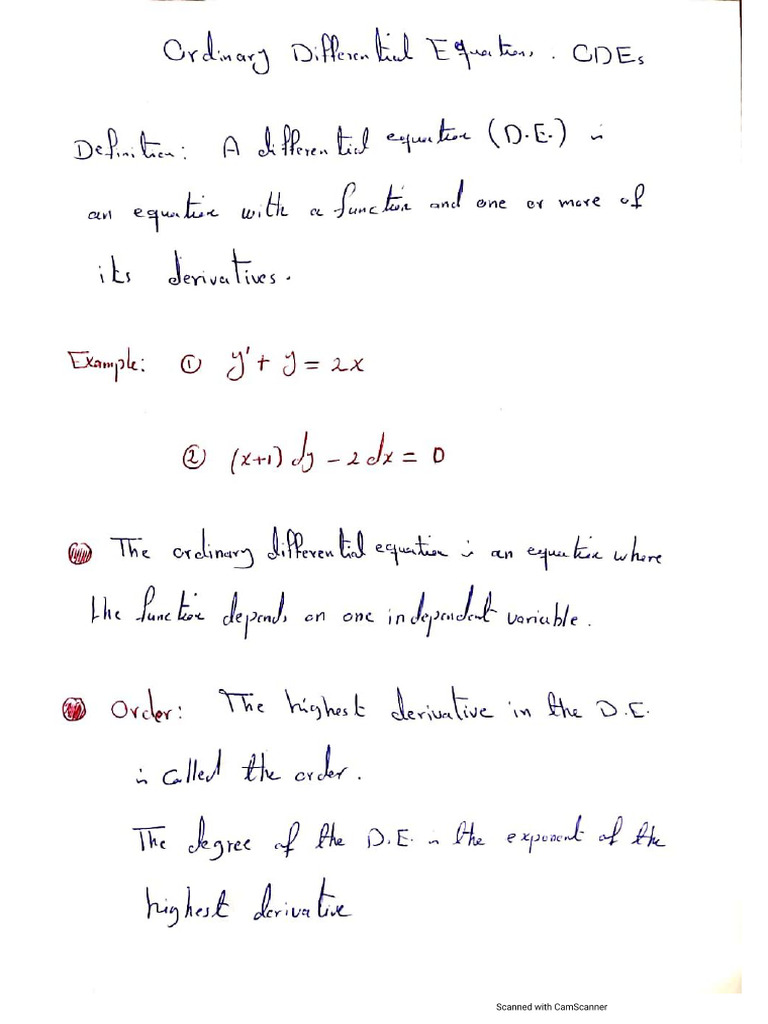 Ordinary Differential Equations. ODEs
Definition: A differential equation (D.E.) is
an equation with a function and one or more of
its derivatives.
Example: ① y' + y = 2x
② (x+1) dy - 2 dx = 0
The ordinary differential equation is an equation where
the function depends on one independent variable.
Order: The highest derivative in the D.E.
is called the order.
The degree of the D.E. is the exponent of the
highest derivative
Scanned with CamScanner